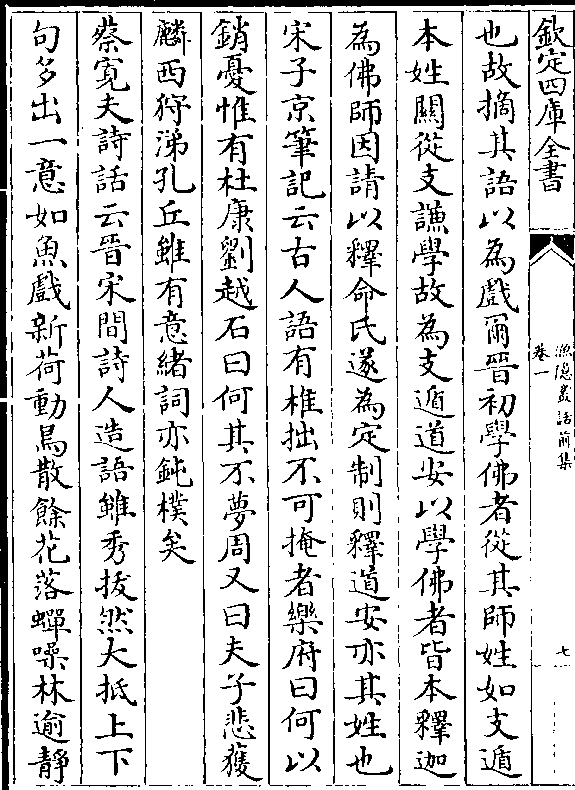 欽定四庫全書
漁隱叢話前集
卷一
七
也故摘其語以為戲爾晉初學佛者從其師姓如支遁
本姓關從支謙學故為支遁道安以學佛者皆本釋迦
為佛師因請以釋命氏遂為定制則釋道安亦其姓也
宋子京筆記云古人語有椎拙不可掩者樂府曰何以
銷憂惟有杜康劉越石曰何其不夢周又曰夫子悲獲
麟西狩涕孔丘雖有意緒詞亦鈍樸矣
蔡寛夫詩話云晉宋間詩人造語雖秀拔然大抵上下
句多出一意如魚戲新荷動鳥散餘花落蟬噪林逾靜